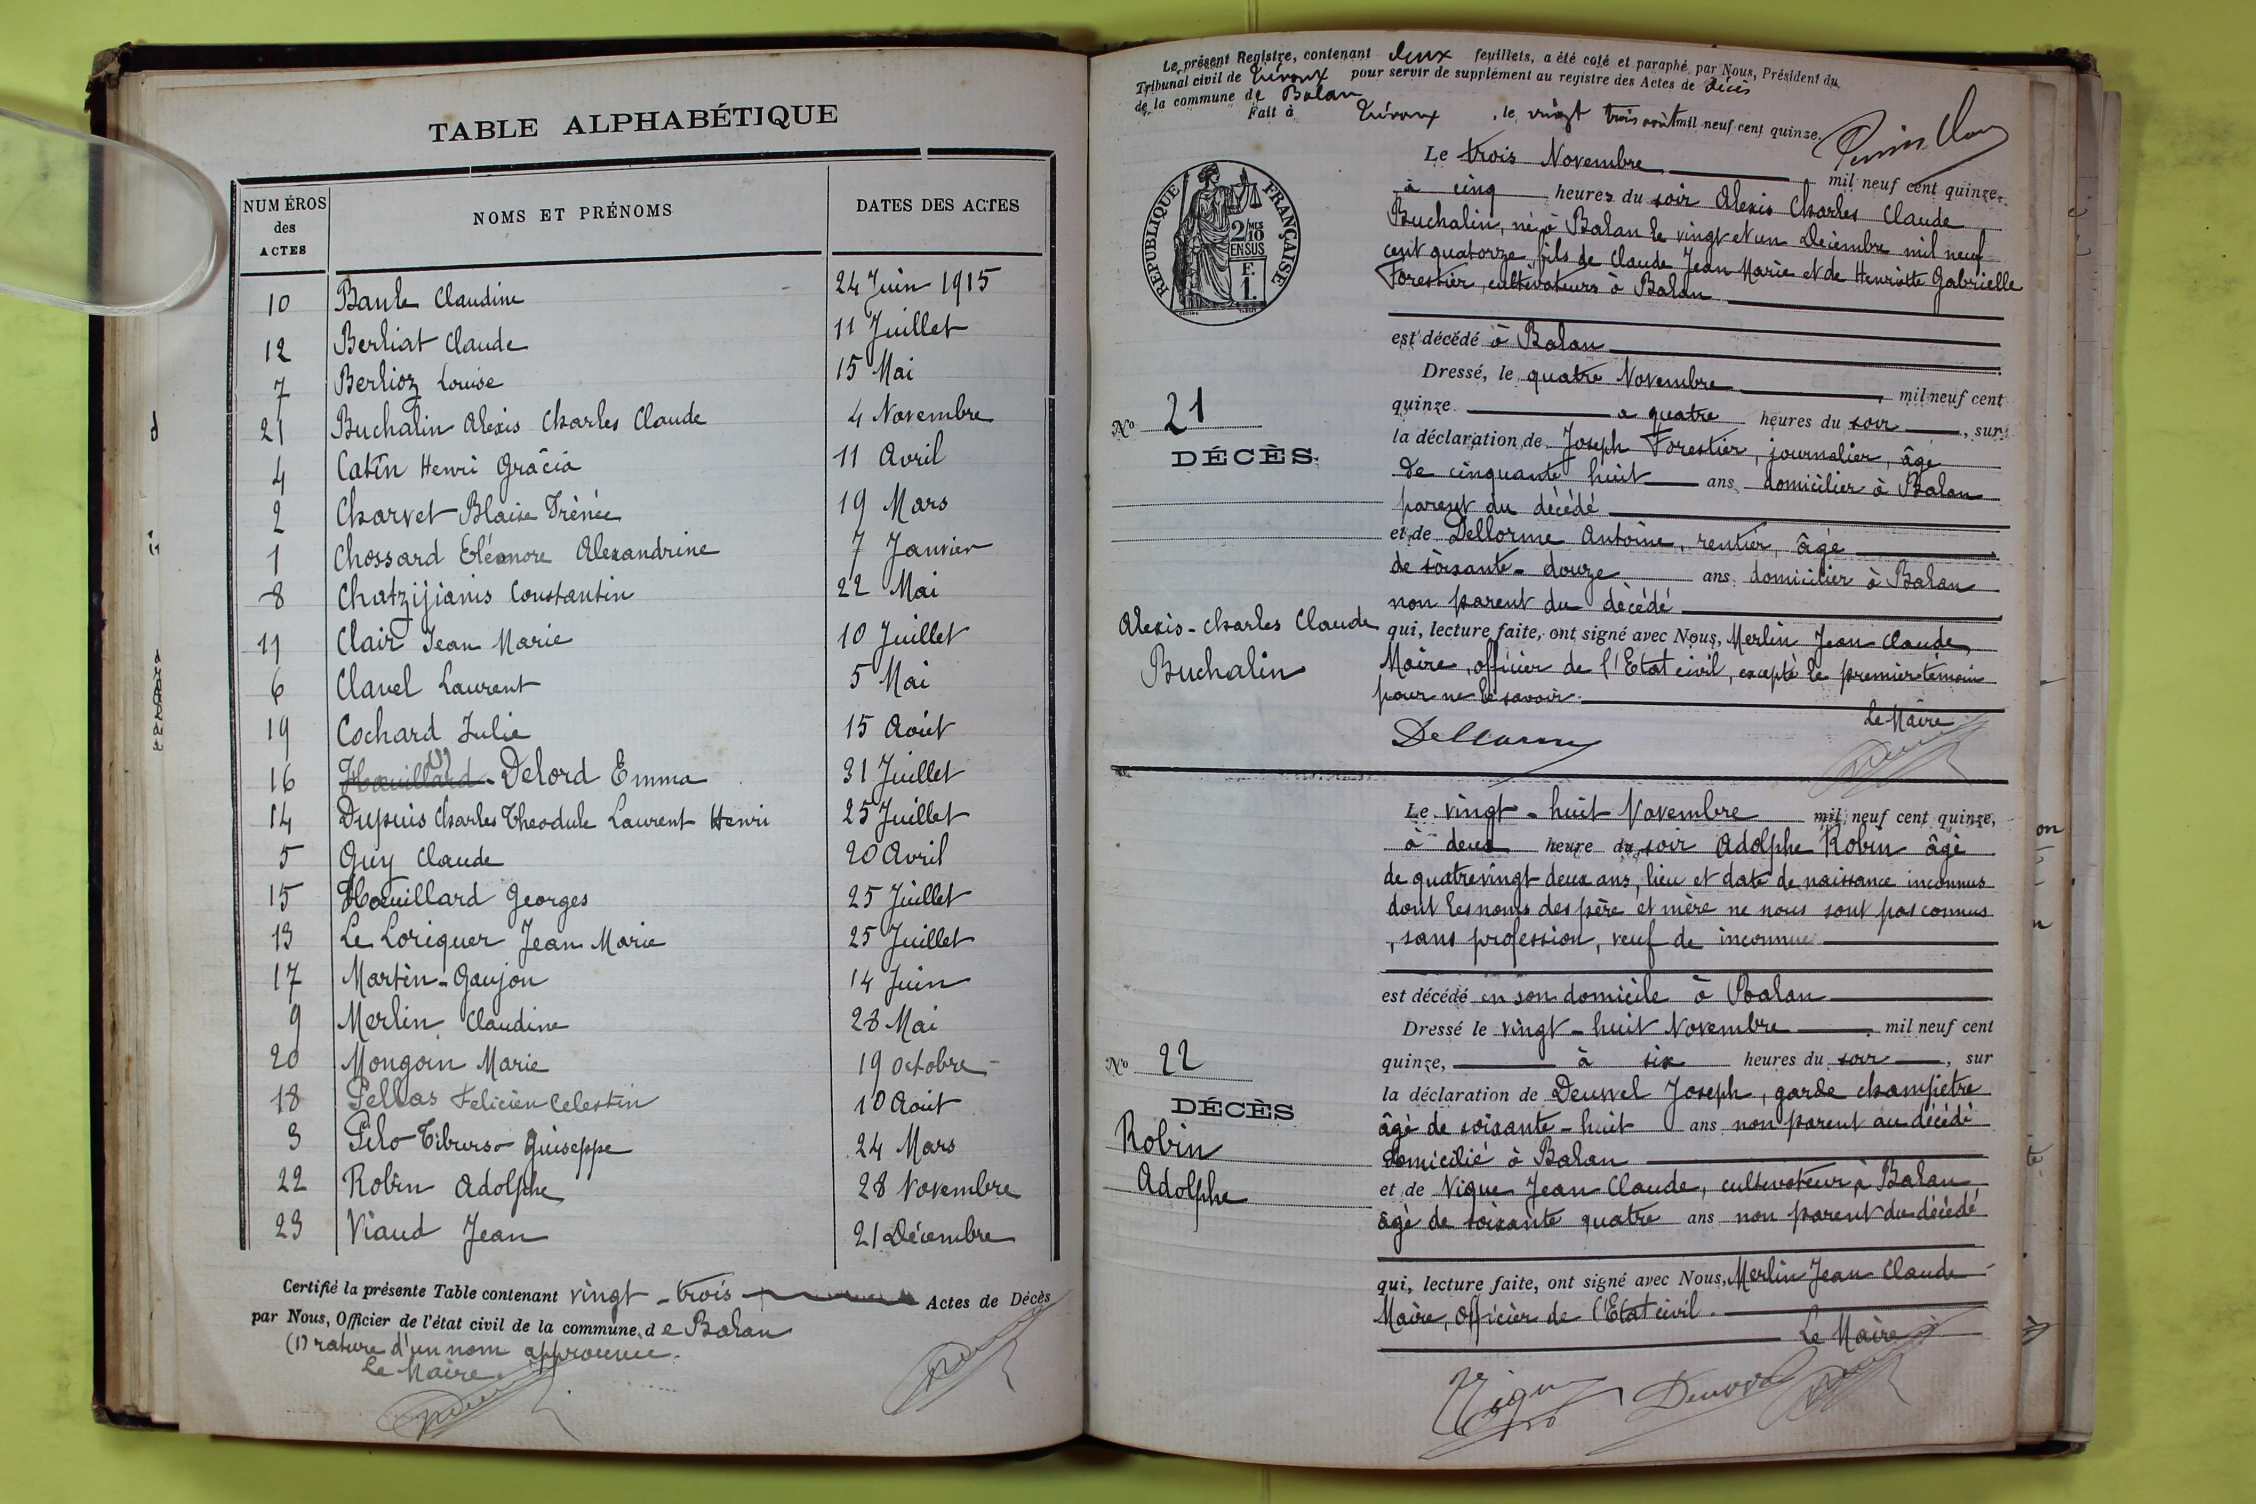 TABLE ALPHABÉTIQUE
NUMÉROS des ACTES
NOMS ET PRÉNOMS
DATES DES ACTES
10 Banle Claudine 24 Juin 1915
12 Berliat Claude 11 Juillet
7 Berlioz Louise 15 Mai
21 Buchalin Alexis Charles Claude 4 Novembre
4 Catin Henri Grâcia 11 Avril
2 Charvet Blaise Irénée 19 Mars
1 Chossard Eléonore Alexandrine 7 Janvier
8 Chatzijianis Constantin 22 Mai
11 Clair Jean Marie 10 Juillet
6 Clavel Laurent 5 Mai
19 Cochard Julie 15 Août
16 Hoeuillard (1) Delord Emma 31 Juillet
14 Dupuis Charles Theodule Laurent Henri 25 Juillet
5 Guy Claude 20 Avril
15 Hoeuillard Georges 25 Juillet
13 Le Loriquer Jean Marie 25 Juillet
17 Martin-Gaujon 14 Juin
9 Merlin Claudine 28 Mai
20 Mongoin Marie 19 octobre
18 Pellas Felicien Celestin 10 Août
3 Pilo Tiburso Guiseppe 24 Mars
22 Robin Adolphe 28 Novembre
23 Viaud Jean 21 Décembre
Certifié la présente Table contenant vingt-trois Actes de Décès
par Nous, Officier de l'état civil de la commune de Balan
(1) rature d'un nom approuvée.
Le Maire
Le présent Registre, contenant deux feuillets, a été coté et paraphé par Nous, Président du
Tribunal civil de Trévoux pour servir de supplément au registre des Actes de décès
de la commune de Balan
Fait à Trévoux, le vingt trois août mil neuf cent quinze.
RÉPUBLIQUE FRANÇAISE
2/10 MES
EN SUS
F.
1.
Le trois Novembre mil neuf cent quinze,
à cinq heures du soir Alexis Charles Claude
Buchalin, né à Balan le vingt et un Décembre mil neuf
cent quatorze, fils de Claude Jean Marie et de Henriette Gabrielle
Forestier, cultivateurs à Balan
est décédé à Balan
Dressé, le quatre Novembre, mil neuf cent
quinze à quatre heures du soir, sur
la déclaration de Joseph Forestier, journalier, âgé
de cinquante huit ans, domicilier à Balan
parent du décédé
et de Dellorme Antoine, rentier, âgé
de soixante-douze ans, domicilier à Balan
non parent du décédé
qui, lecture faite, ont signé avec Nous, Merlin Jean Claude,
Maire, officier de l'Etat civil, excepté le premier témoin
pour ne le savoir.
Le Maire
Dellorme
No 21
DÉCÈS.
Alexis-Charles Claude
Buchalin
Le vingt-huit Novembre mil neuf cent quinze,
à deux heure du soir Adolphe Robin âgé
de quatrevingt deux ans, lieu et date de naissance inconnus
dont les noms des père et mère ne nous sont pas connus
, sans profession, veuf de inconnue
est décédé en son domicile à Balan
Dressé le vingt-huit Novembre, mil neuf cent
quinze, à six heures du soir, sur
la déclaration de Deuvvel Joseph, garde champêtre
âgé de soixante-huit ans non parent au décédé
domicilié à Balan
et de Nique Jean Claude, cultivateur à Balan
âgé de soixante quatre ans non parent du décédé
qui, lecture faite, ont signé avec Nous, Merlin Jean Claude
Maire, Officier de l'Etat civil.
Le Maire
No 22
DÉCÈS
Robin
Adolphe